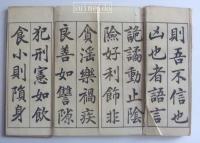 則吾不信也
凶也者語言
詭譎動止陰
險好利飾非
貪淫樂禍疾
良善如讐隙
犯刑憲如飲
食小則隕身